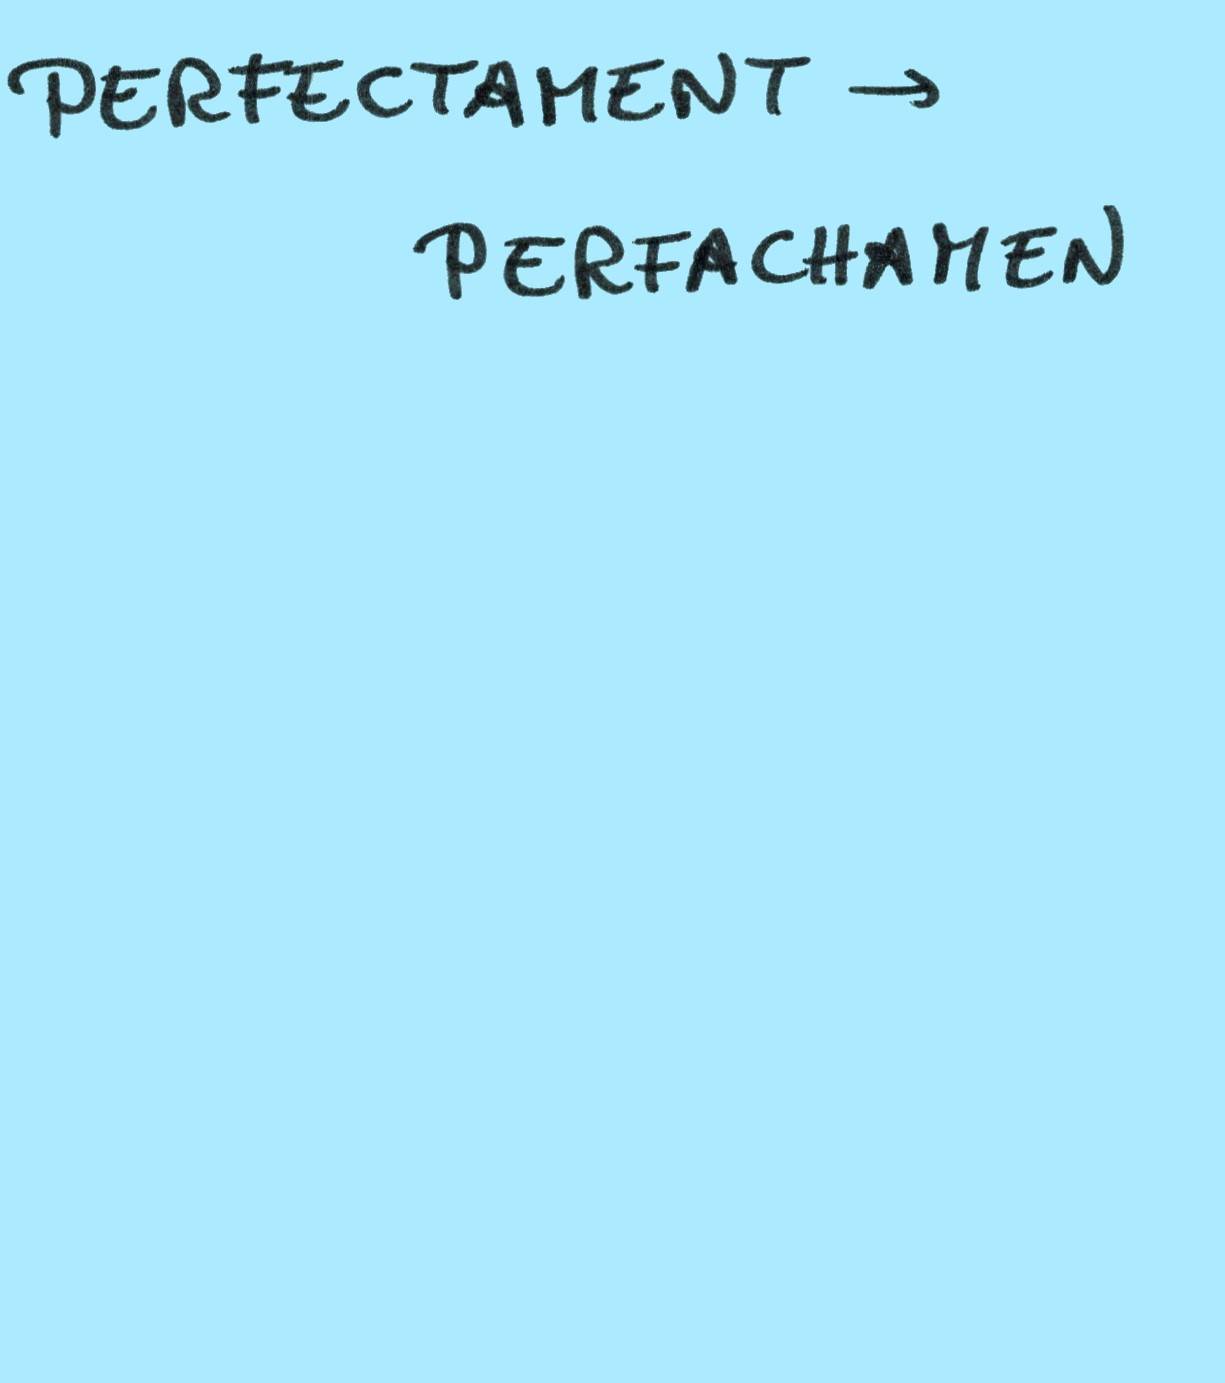 PERFECTAMENT →
PERFACHAMEN